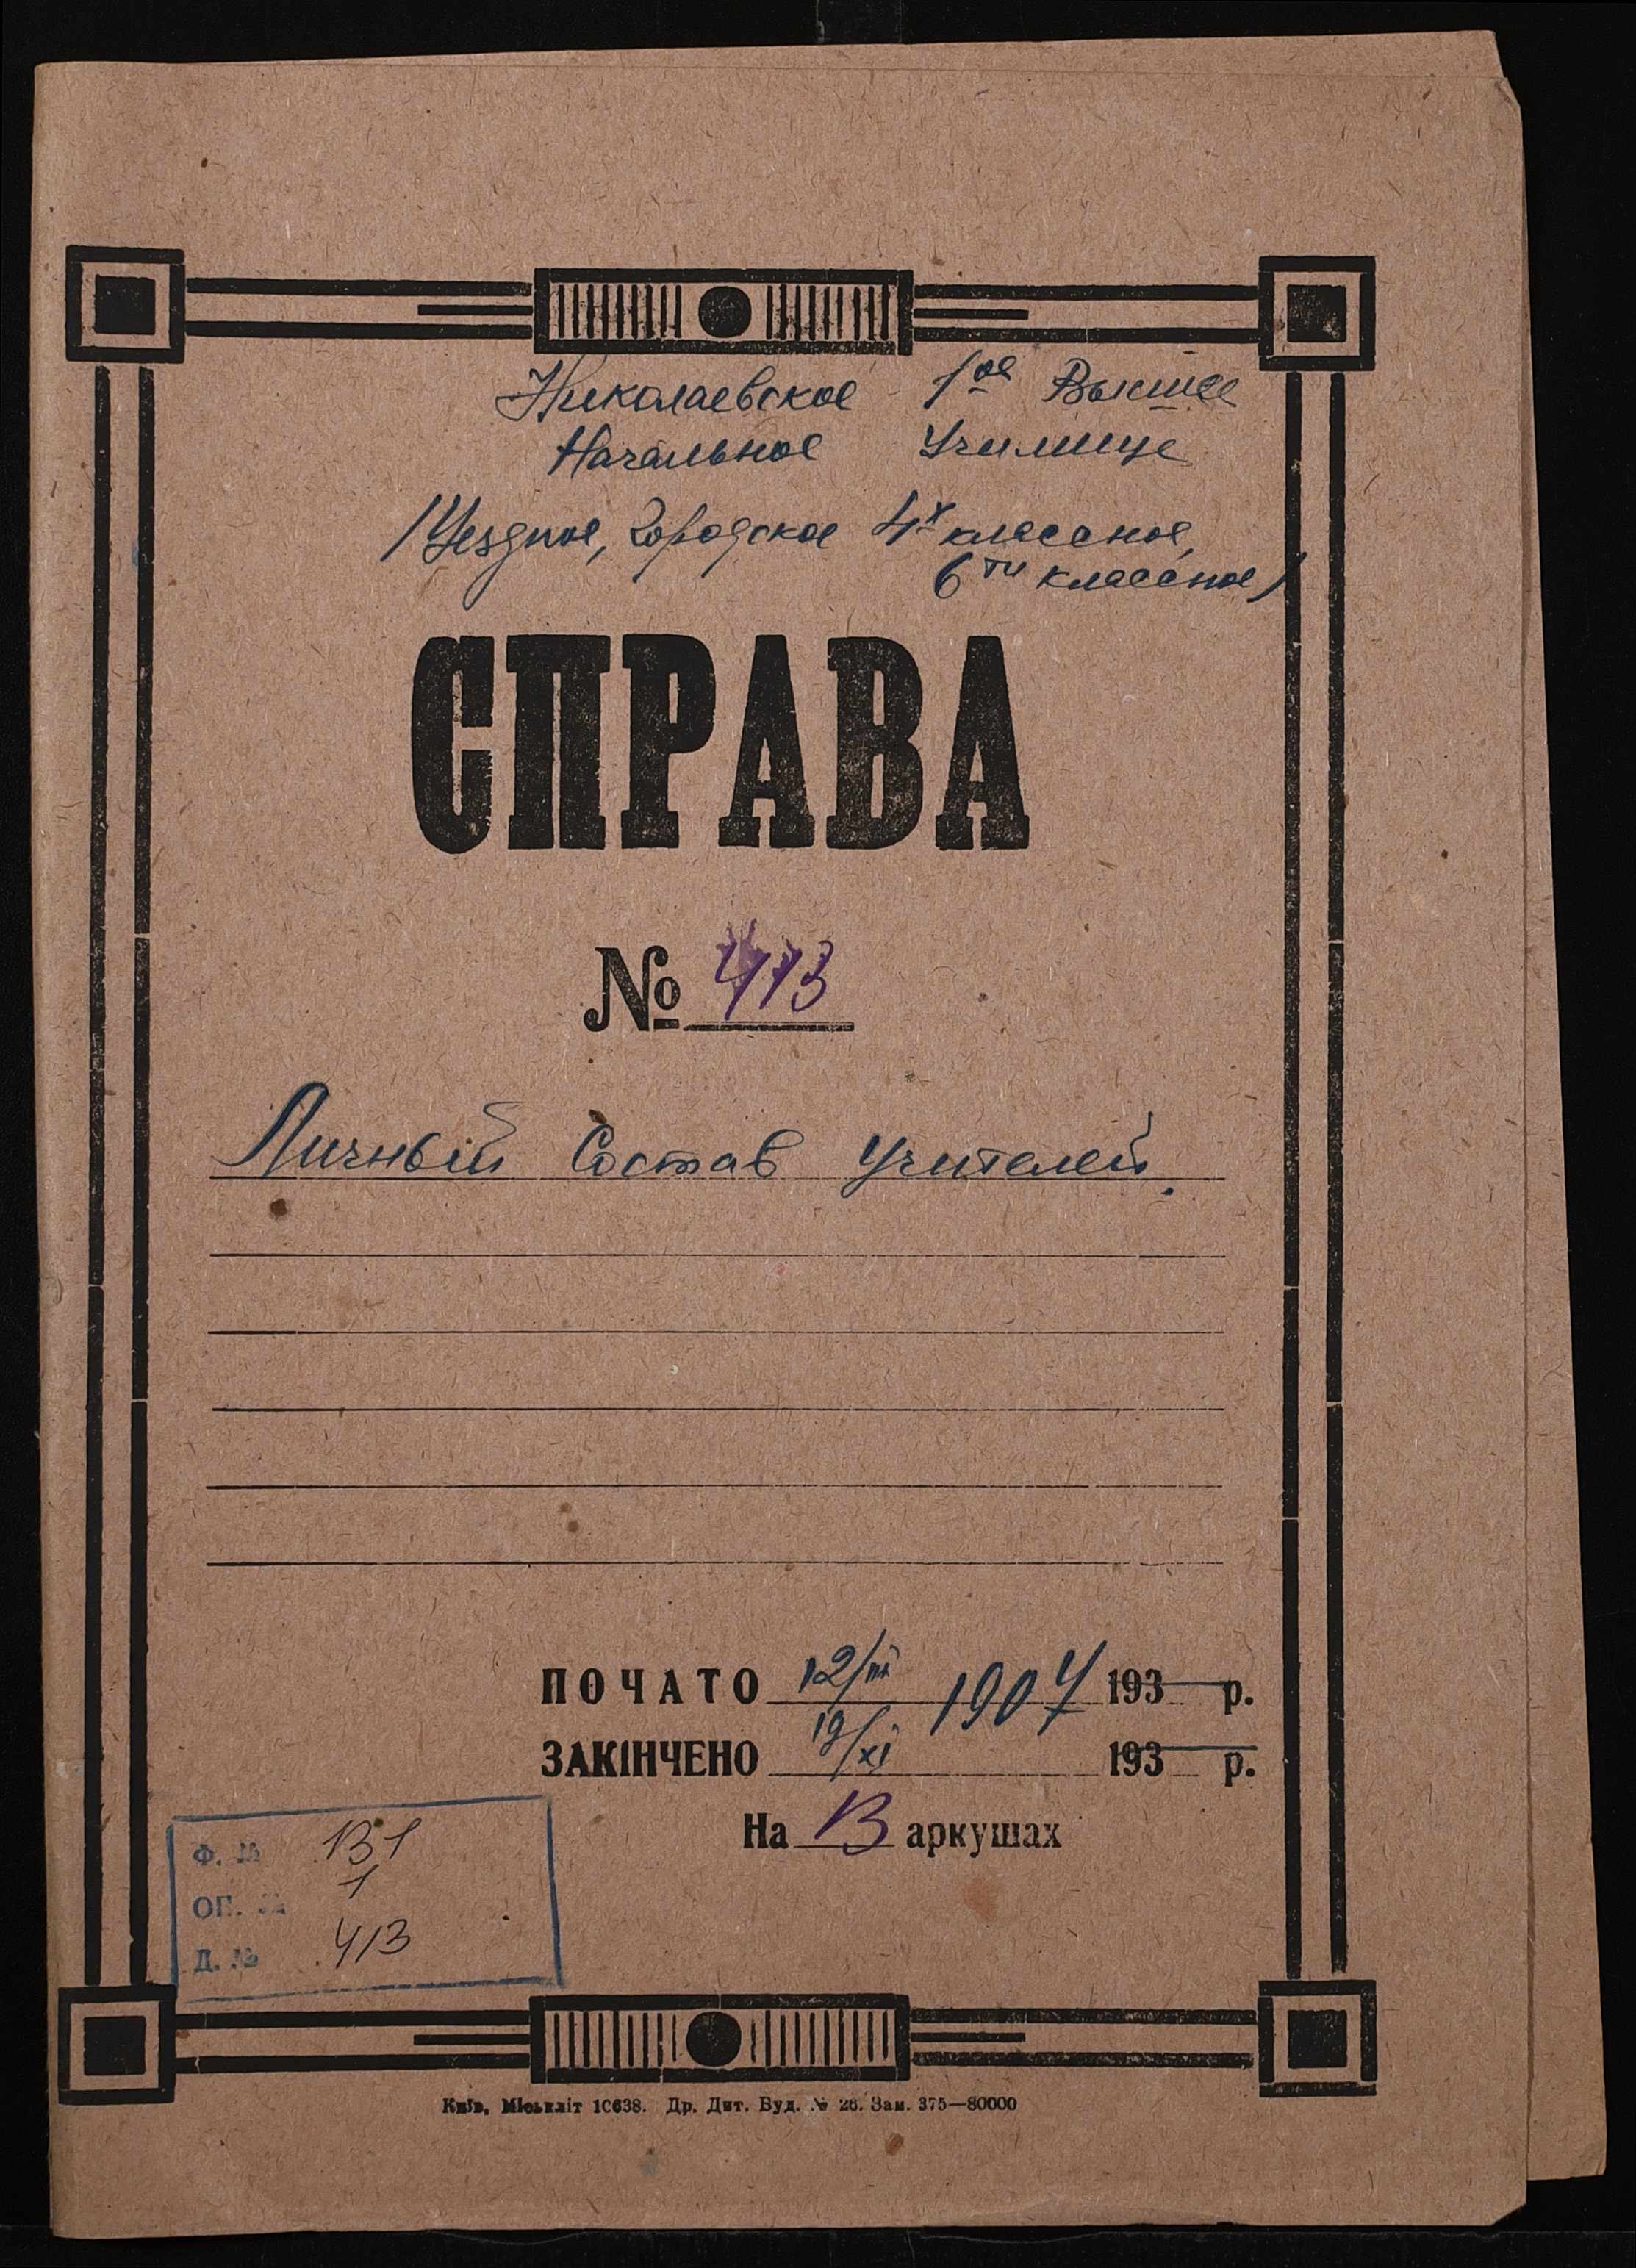 Николаевское 1ое Высшее
Начальное Училище
/Уездное, городское 4х классное,
6ти классное/
СПРАВА
№ 413
Личный Состав учителей.
ПОЧАТО 12/III 1907 193 р.
ЗАКІНЧЕНО 19/XI 193 р.
На 13 аркушах
Ф. № 131
ОП. № 1
Д. № 413
Київ, Міськліт 10638. Др. Дит. Буд. № 26. Зам. 375—80000